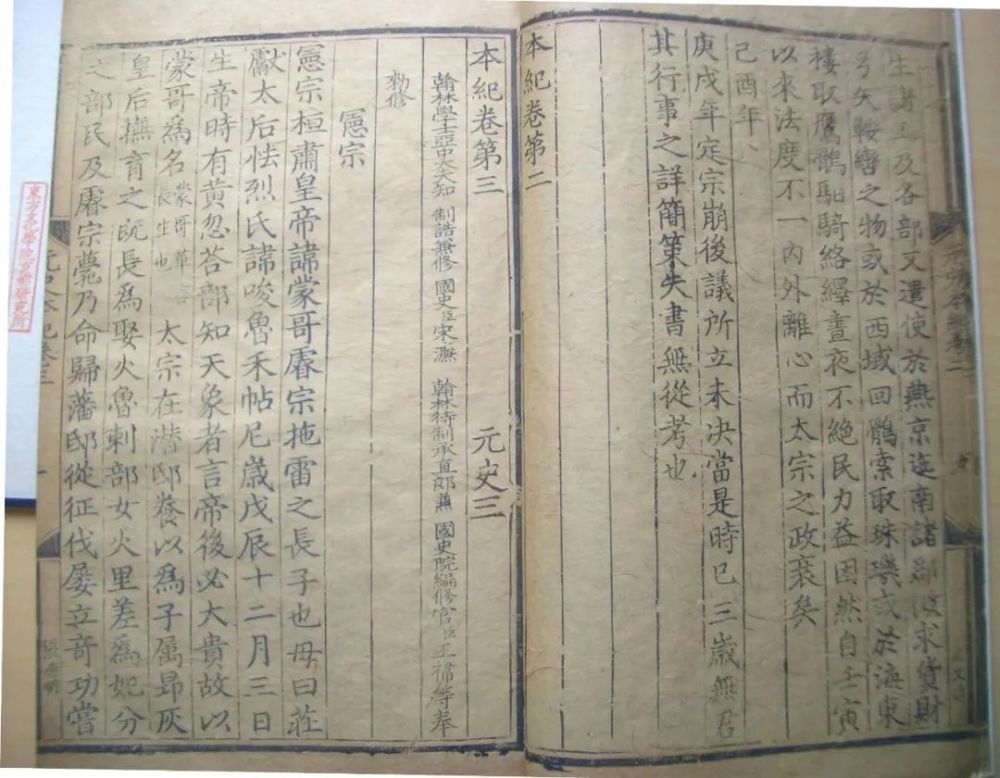 生諸王及各部又遣使於燕京迤南諸郡徵求貨財
弓矢鞍轡之物或於西域回鶻索取珠璣或於海東
樓取鷹鶻馹騎絡繹晝夜不絶民力益困然自壬寅
以來法度不一內外離心而太宗之政衰矣
己酉年
庚戌年定宗崩後議所立未决當是時已三歲無君
其行事之詳簡策失書無從考也
本紀卷第二
本紀卷第三 元史三
翰林學士亞中大夫知 制誥兼修 國史臣宋濂 翰林待制承直郎兼 國史院編修官臣王褘等奉
勑修
憲宗
憲宗桓肅皇帝諱蒙哥睿宗拖雷之長子也母曰莊
獻太后怯烈氏諱唆魯禾帖尼歲戊辰十二月三日
生帝時有黃忽荅部知天象者言帝後必大貴故以
蒙哥爲名蒙哥華言長生也 太宗在潛邸養以爲子屬昂灰
皇后撫育之旣長爲娶火魯剌部女火里差爲妃分
之部民及睿宗薨乃命歸藩邸從征伐屢立奇功嘗
東方文化學院京都研究所